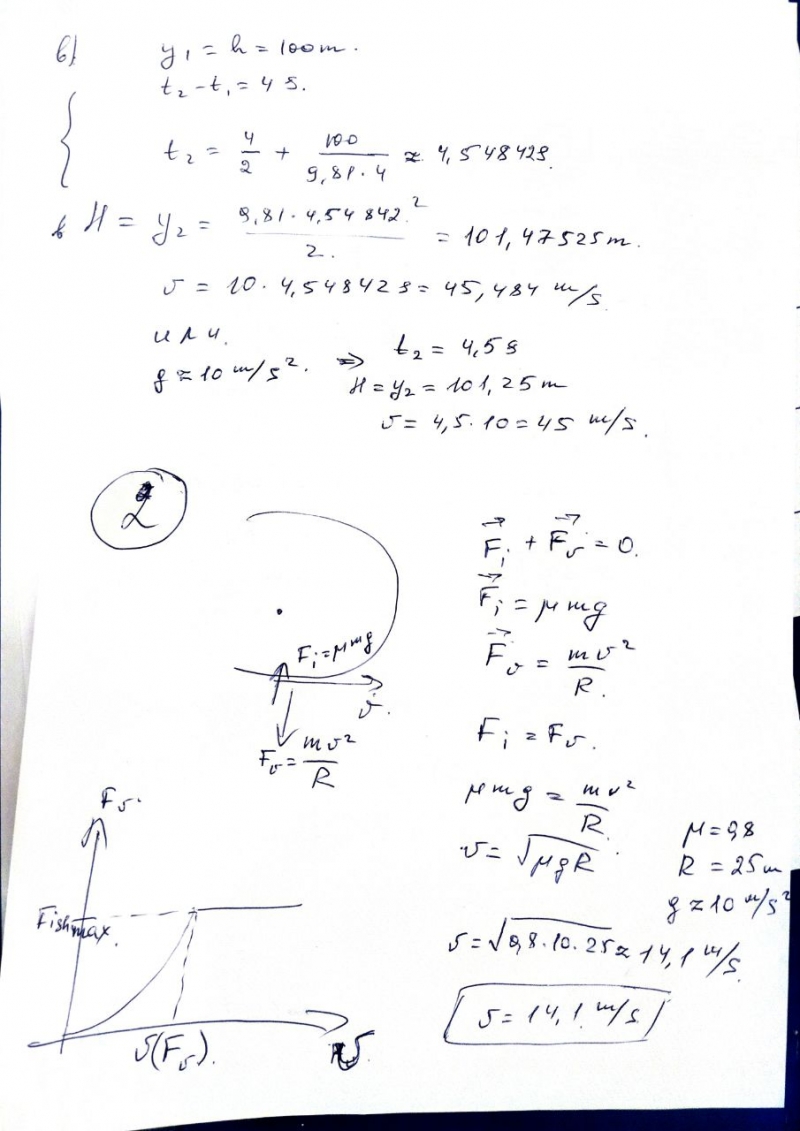 в)
y₁ = h = 100m.
t₂ - t₁ = 4 s.
t₂ = 4/2 + 100/(9,81 · 4) ≈ 4,54842s.
H = y₂ = (9,81 · 4,54842²)/2. = 101,47525m.
v = 10 · 4,54842s = 45,484 m/s.
или.
g ≈ 10 m/s². => t₂ = 4,5s
H = y₂ = 101,25m
v = 4,5 · 10 = 45 m/s.
2
Fᵢ = μmg
v.
Fᵥ = mv²/R
F⃗ᵢ + F⃗ᵥ = 0.
F⃗ᵢ = μmg
F⃗ᵥ = mv²/R.
Fᵢ = Fᵥ.
μmg = mv²/R.
v = √μgR.
μ = 0,8
R = 25m
g ≈ 10 m/s²
v = √0,8·10·25 ≈ 14,1 m/s.
v = 14,1 m/s
Fᵥ.
max.
v(Fᵥ).
v.